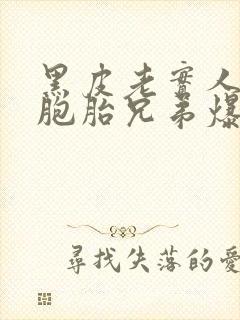 黑皮老實人
胞胎兄弟爆
尋找失落的愛